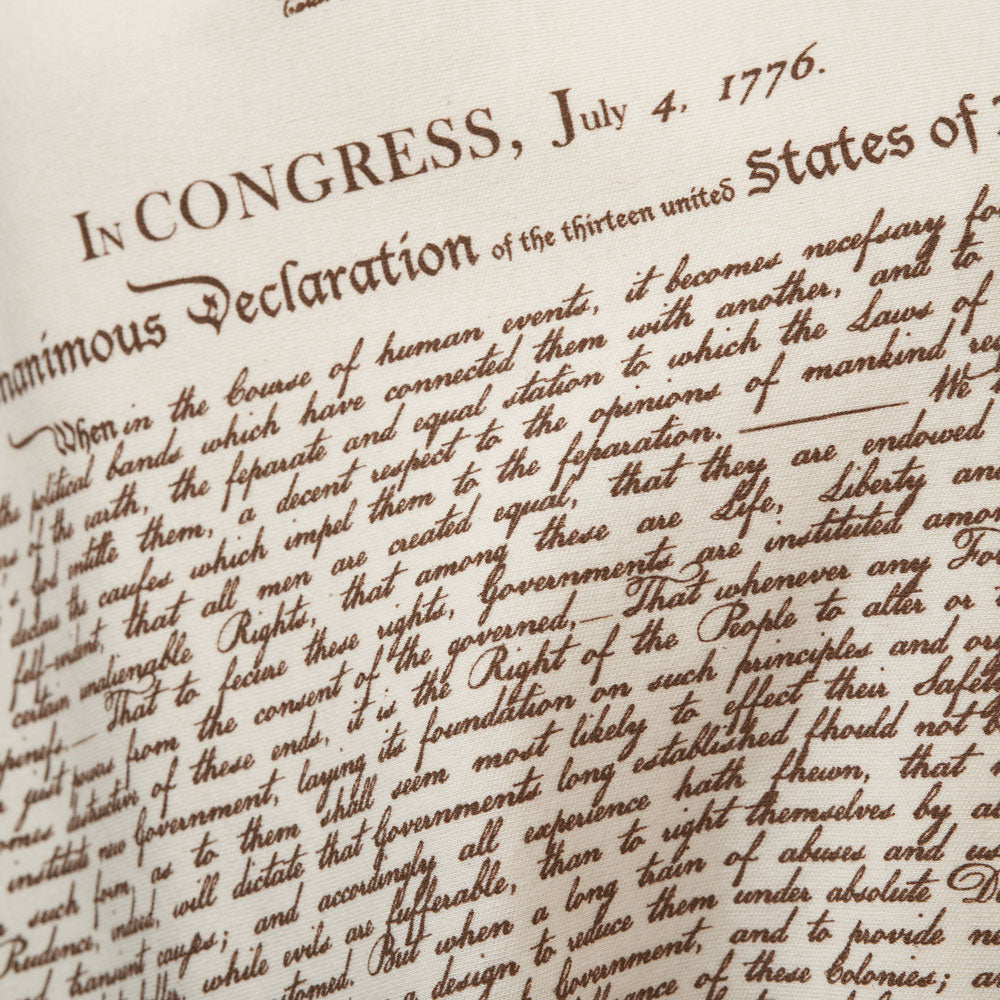 IN CONGRESS, July 4, 1776.
nanimous Declaration of the thirteen united States of
When in the Course of human events, it becomes necefsary fo
the political bands which have connected them with another, and to
of the earth, the feparate and equal station to which the Laws of
s God intitle them, a decent respect to the opinions of mankind re
declare the caufes which impel them to the feparation. ——— We
felf-evident, that all men are created equal, that they are endowed
certain unalienable Rights, that among these are Life, Liberty an
—That to fecure these rights, Governments are instituted amo
just powers from the consent of the governed,—That whenever any Fo
omes destructive of these ends, it is the Right of the People to alter or
institute new Government, laying its foundation on such principles and or
such form, as to them shall seem most likely to effect their Safet
Prudence, indeed, will dictate that Governments long established fhould not b
transient caufes; and accordingly all experience hath fhewn, that
while evils are fufferable, than to right themselves by a
But when a long train of abuses and us
a design to reduce them under absolute D
Government, and to provide n
of these Colonies; a